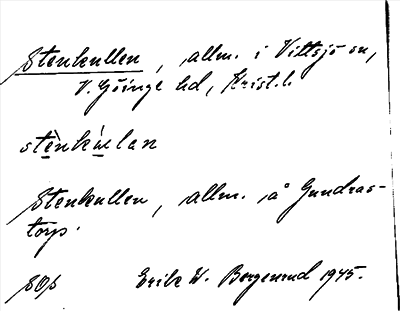 Stenkullen, allm. i Vittsjö sn,
V. Göinge hd, Krist. l.
stènkúlan
Stenkullen, allm. å Gundras-
torp.
SOp Erik W. Bergenrud 1945.